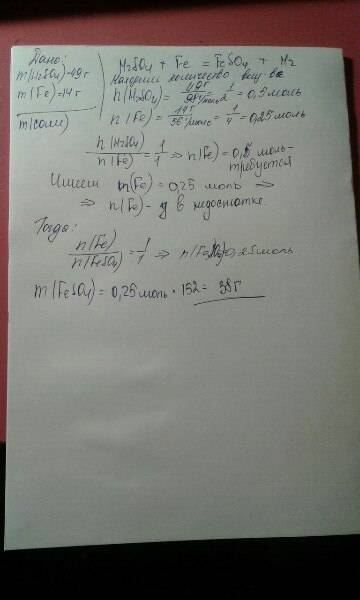 Дано:
m(H2SO4)=49г
m(Fe)=14г
m(соли)
H2SO4 + Fe = FeSO4 + H2
Находим количество вещ-ва
n(H2SO4) = 49г / 98г/моль = 1/2 = 0,5 моль
n(Fe) = 14г / 56г/моль = 1/4 = 0,25 моль
n(H2SO4) / n(Fe) = 1/1 ⇒ n(Fe) = 0,5 моль-
требуется
Имеем n(Fe) = 0,25 моль ⇒
⇒ n(Fe) - в недостатке.
Тогда:
n(Fe) / n(FeSO4) = 1/1 ⇒ 0,25 моль
m(FeSO4) = 0,25 моль · 152 = 38г